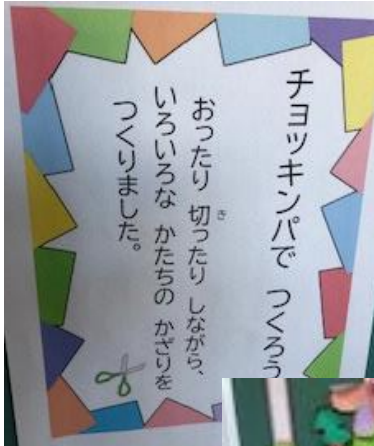 チョッキンパで つくろう
おったり 切ったり しながら、
いろいろな かたちの かざりを
つくりました。